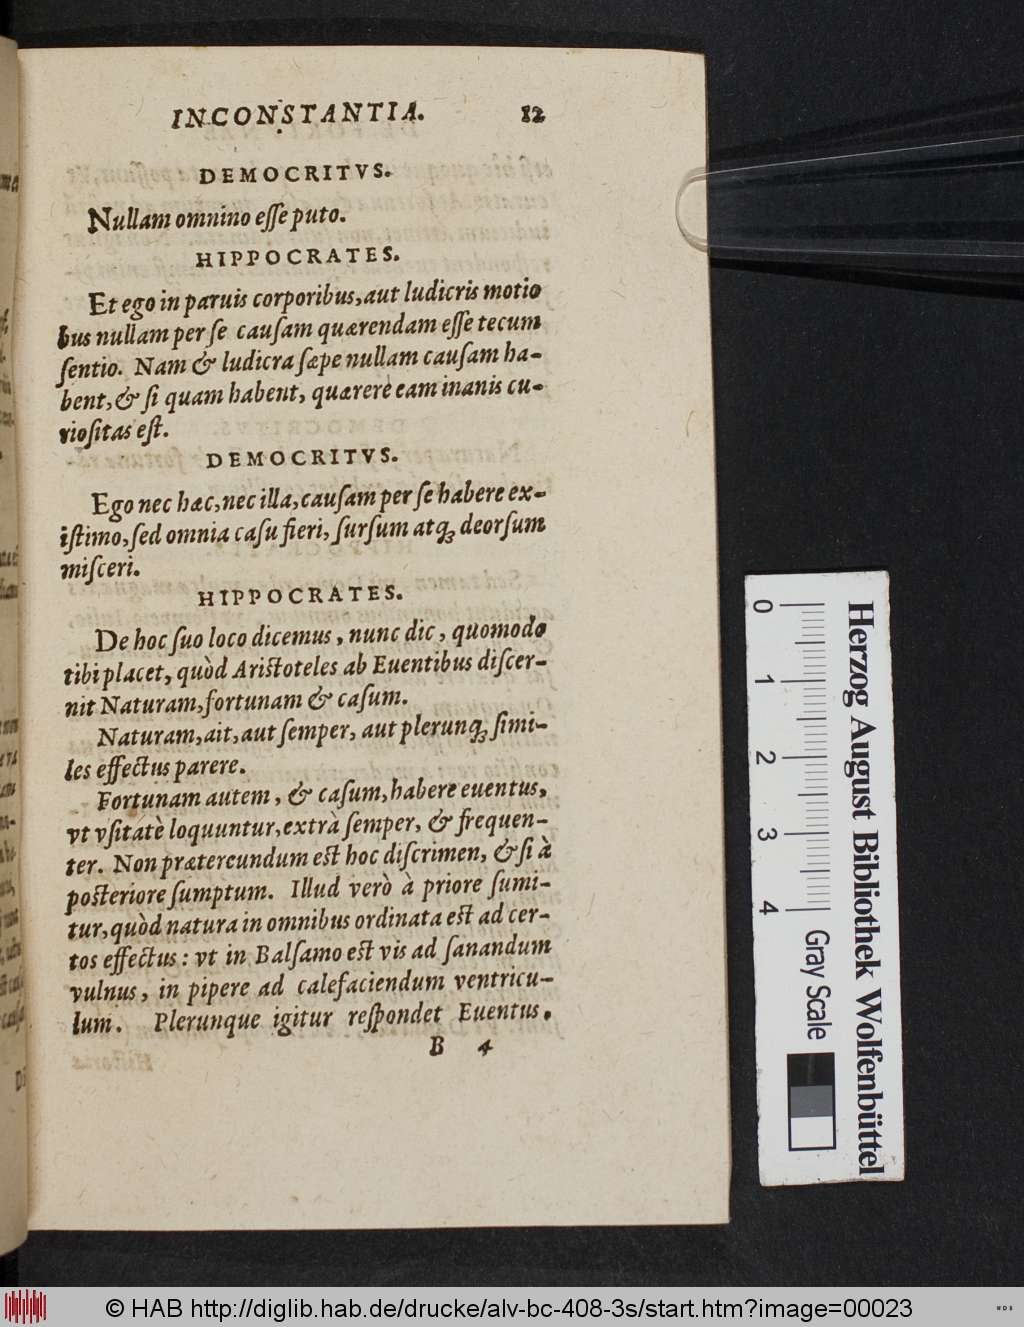 INCONSTANTIA. 12
DEMOCRITVS.
Nullam omnino eſſe puto.
HIPPOCRATES.
Et ego in paruis corporibus, aut ludicris motio
bus nullam per ſe cauſam quærendam eſſe tecum
ſentio. Nam & ludicra ſæpe nullam cauſam ha-
bent, & ſi quam habent, quærere eam inanis cu-
rioſitas eſt.
DEMOCRITVS.
Ego nec hæc, nec illa, cauſam per ſe habere ex-
iſtimo, ſed omnia caſu fieri, ſurſum atqꝫ deorſum
miſceri.
HIPPOCRATES.
De hoc ſuo loco dicemus, nunc dic, quomodo
tibi placet, quòd Ariſtoteles ab Euentibus diſcer-
nit Naturam, fortunam & caſum.
Naturam, ait, aut ſemper, aut plerunqꝫ ſimi-
les effectus parere.
Fortunam autem, & caſum, habere euentus,
vt vſitatè loquuntur, extrà ſemper, & frequen-
ter. Non prætereundum eſt hoc diſcrimen, & ſi à
poſteriore ſumptum. Illud verò à priore ſumi-
tur, quòd natura in omnibus ordinata eſt ad cer-
tos effectus: vt in Balſamo eſt vis ad ſanandum
vulnus, in pipere ad calefaciendum ventricu-
lum. Plerunque igitur reſpondet Euentus.
B 4
0 1 2 3 4 Gray Scale
Herzog August Bibliothek Wolfenbüttel
© HAB http://diglib.hab.de/drucke/alv-bc-408-3s/start.htm?image=00023